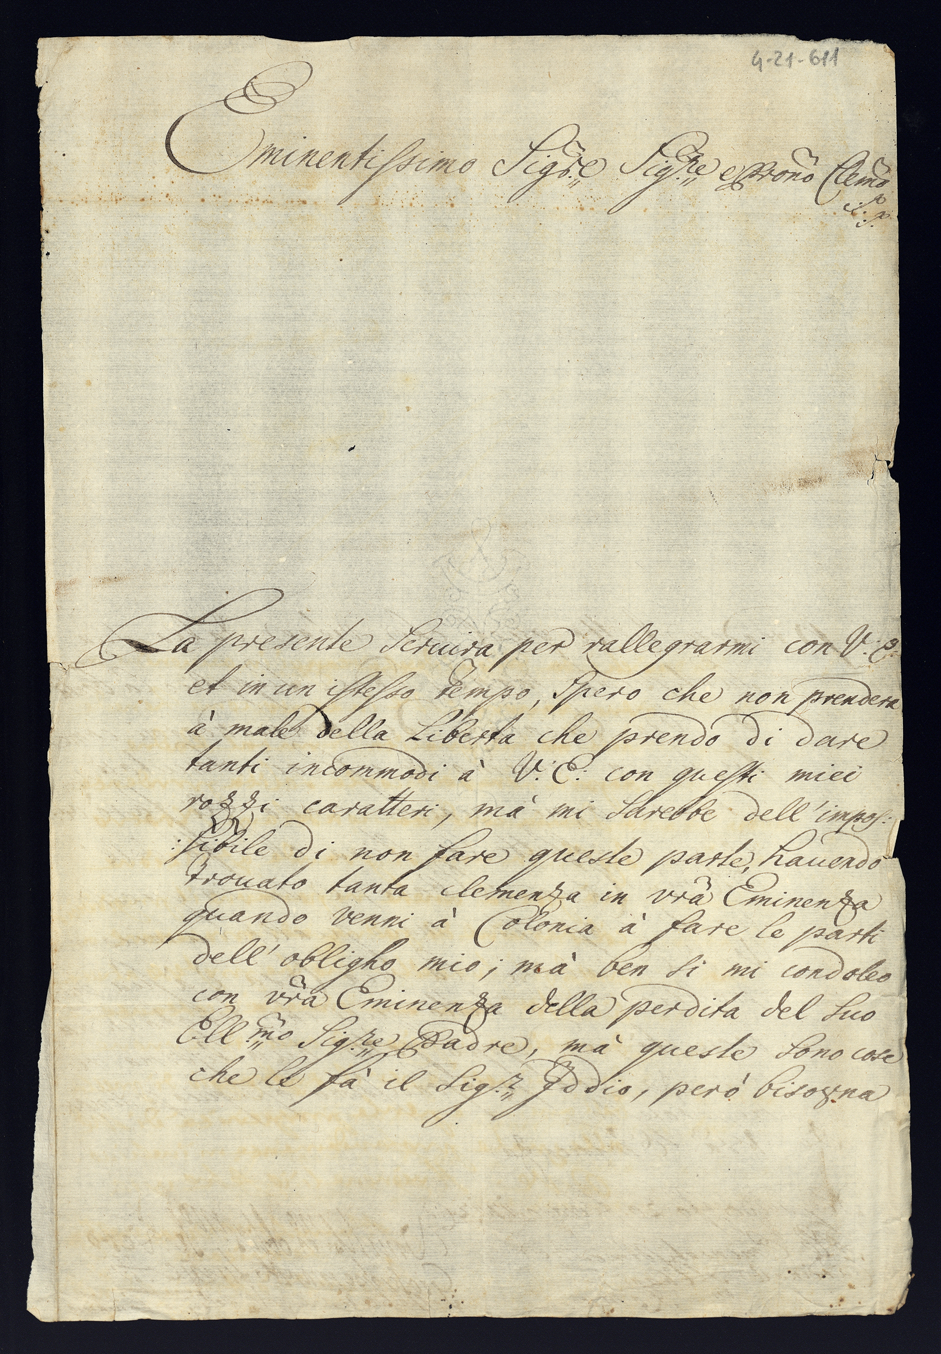 4-21-611
Eminentissimo Sig:re Sig:re e Prone Clemo
La presente seruira per rallegrarmi con V: E:
et in un istesso tempo, spero che non prendera
à male della Liberta che prendo di dare
tanti incommodi à V: E: con questi miei
rozzi caratteri, mà mi sarebbe dell'impos:
:sibile di non fare queste parte, hauendo
trouato tanta clemenza in vrã Eminenza
quando venni à Colonia à fare le parti
dell'obligho mio; mà ben si mi condoleo
con vrã Eminenza della perdita del suo
Ell:mo Sig:re Padre, mà queste sono cose
che le fà il Sig:r Iddio, però bisogna